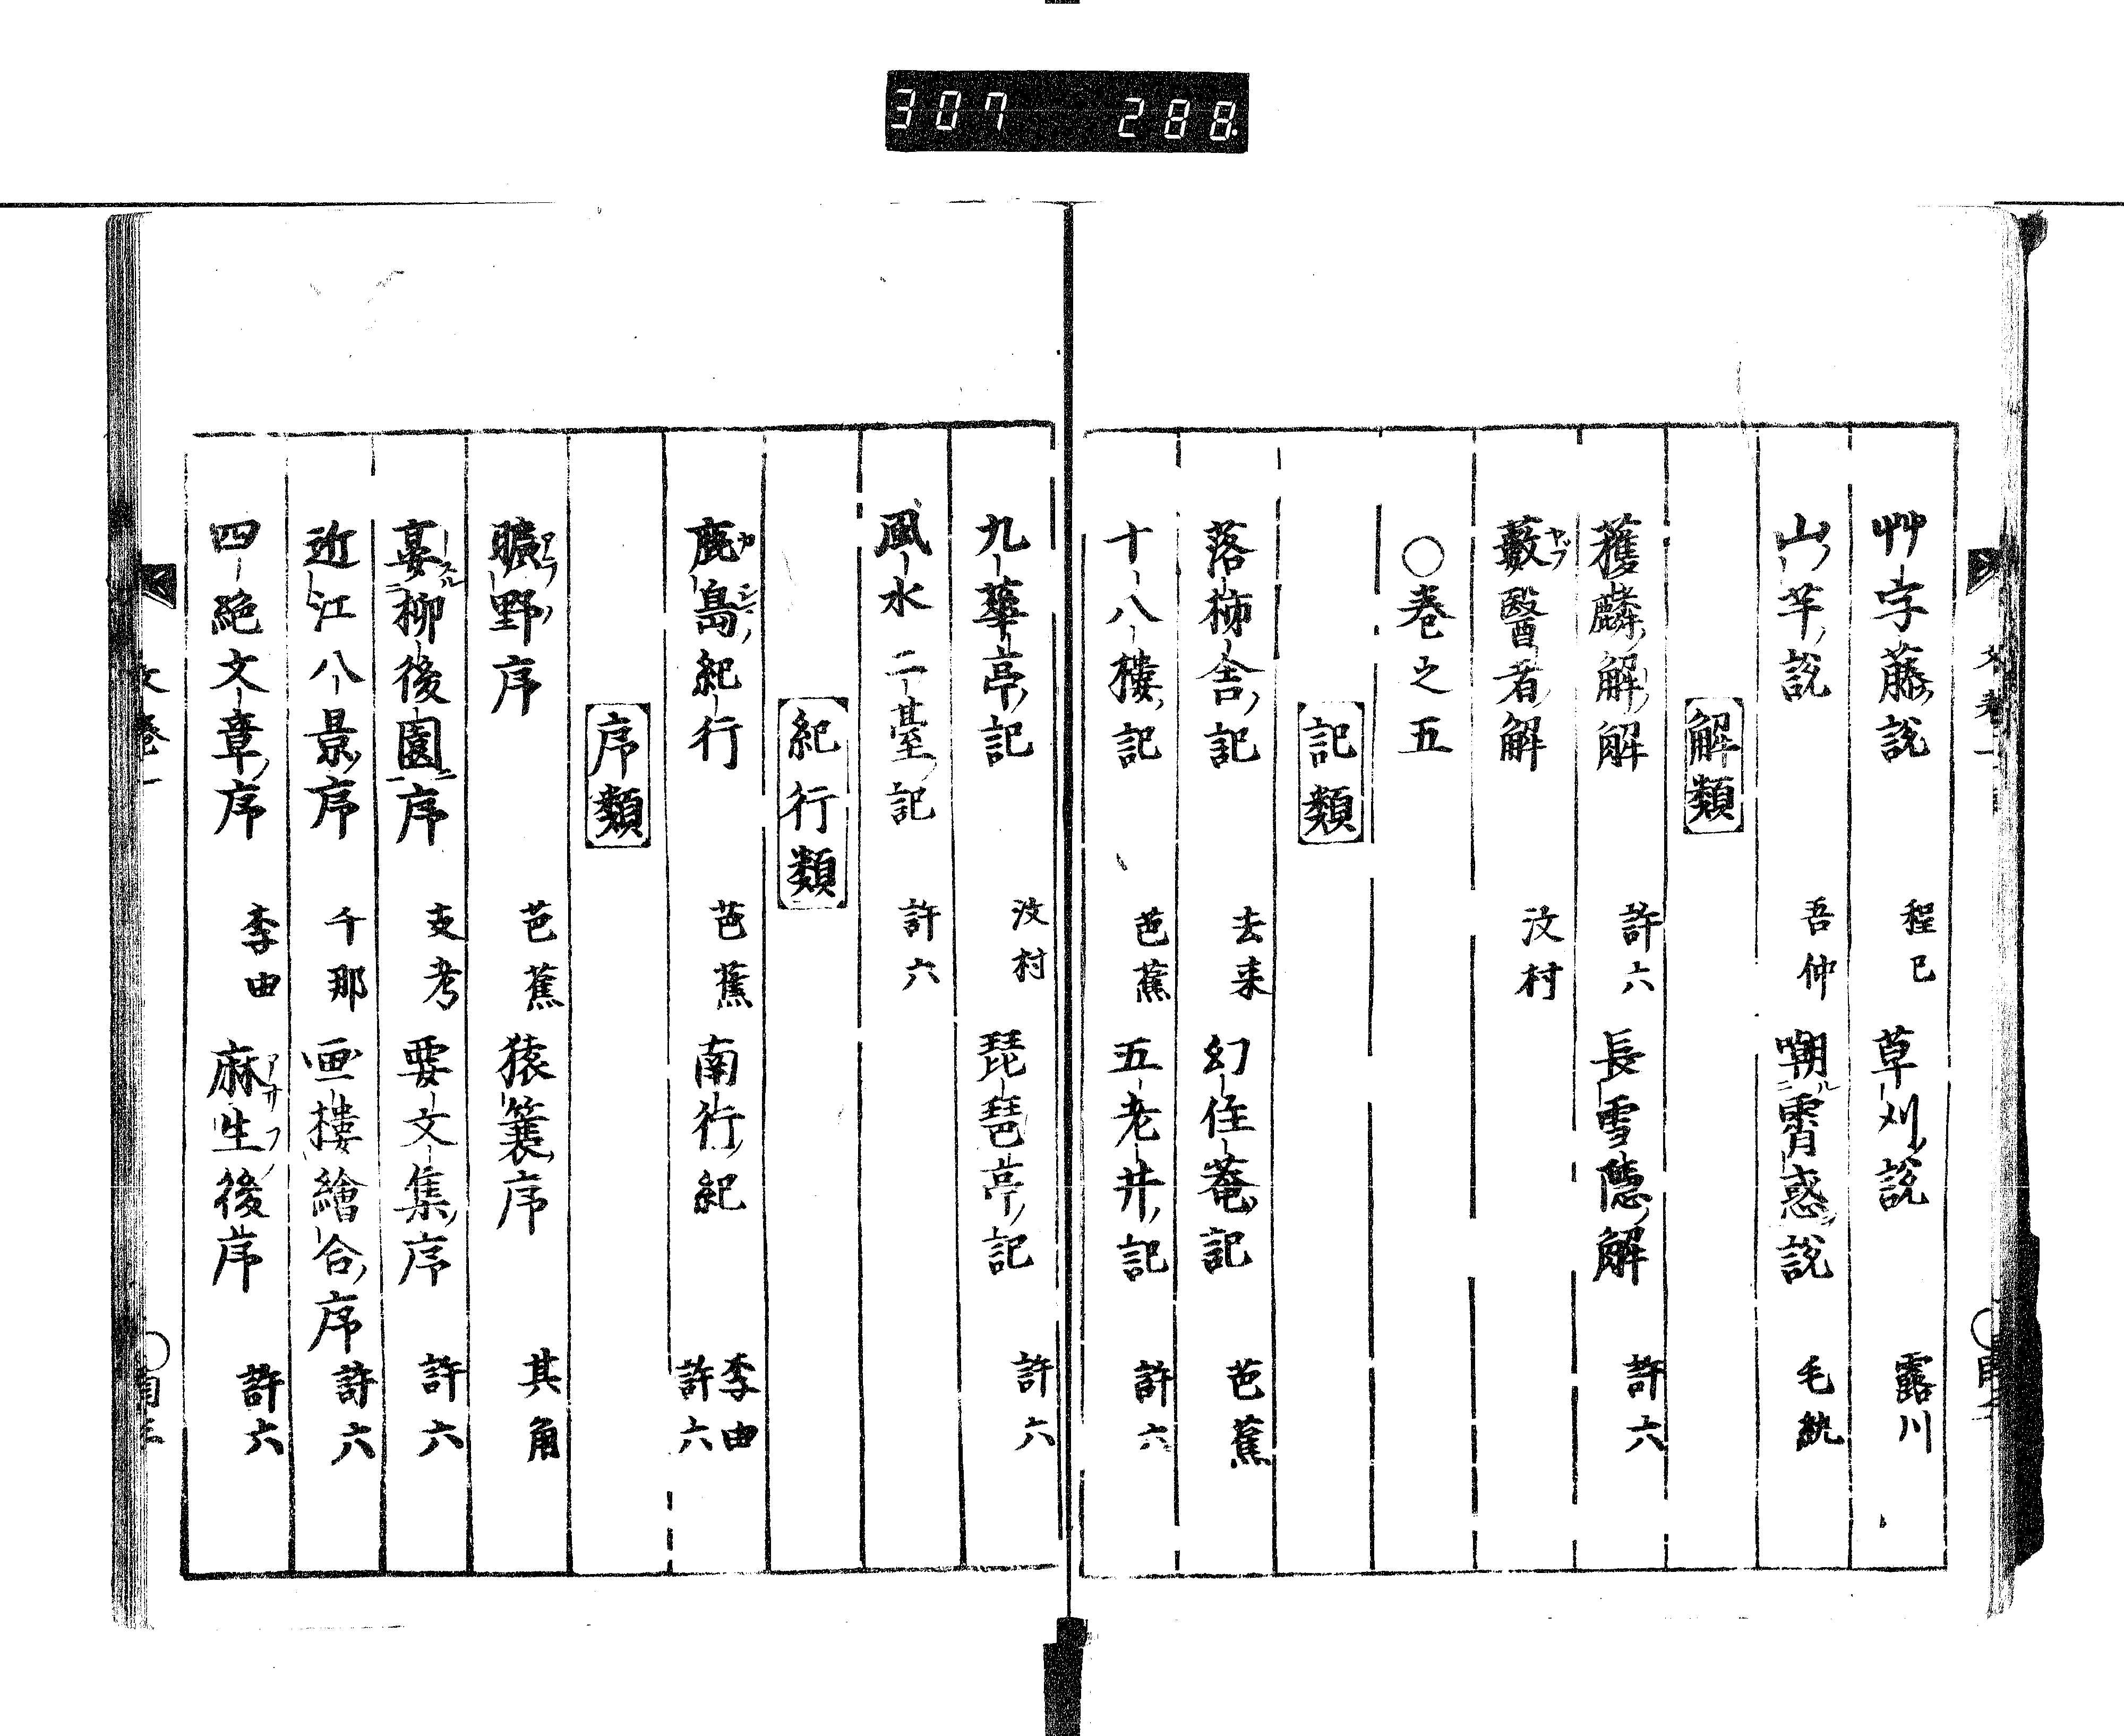 307 288.
艸字藤ノ説 程已 草刈ノ説 露川
山ノ芋ノ説 吾仲 嘲霄惑ノ説 毛紈
解類
獲麟ノ解ノ解 許六 長雪隠ノ解 許六
藪醫者ノ解 汶村
○巻之五
記類
落柿舎ノ記 去来 幻住菴ノ記 芭蕉
十八樓ノ記 芭蕉 五老井ノ記 許六
九華亭ノ記 汶村 琵琶亭ノ記 許六
風水二臺ノ記 許六
紀行類
鹿島ノ紀行 芭蕉 南行ノ紀 李由 許六
序類
曠野ノ序 芭蕉 猿簑ノ序 其角
宴柳後園序 支考 要文集ノ序 許六
近江八景ノ序 千那 画樓繪合ノ序 許六
四絶文章ノ序 李由 麻生後序 許六